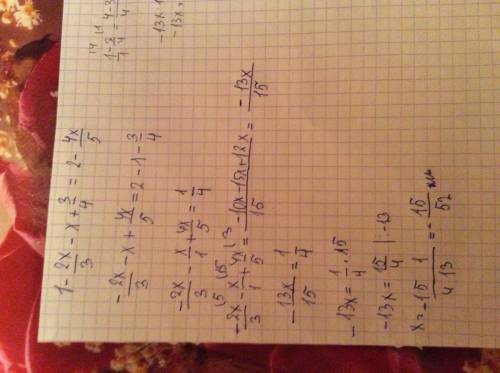 1 - 2x/3 - x + 3/4 = 2 - 4x/5
- 2x/3 - x + 4x/5 = 2 - 1 - 3/4
- 2x/3 - x/1 + 4x/5 = 1/4
- 2x/3 - x/1 + 4x/5 = (-10x - 15x + 12x)/15 = - 13x/15
- 13x/15 = 1/4
- 13x = 1/4 · 15
- 13x = 15/4 | : -13
x = - 15 1/4 13 = - 15/52